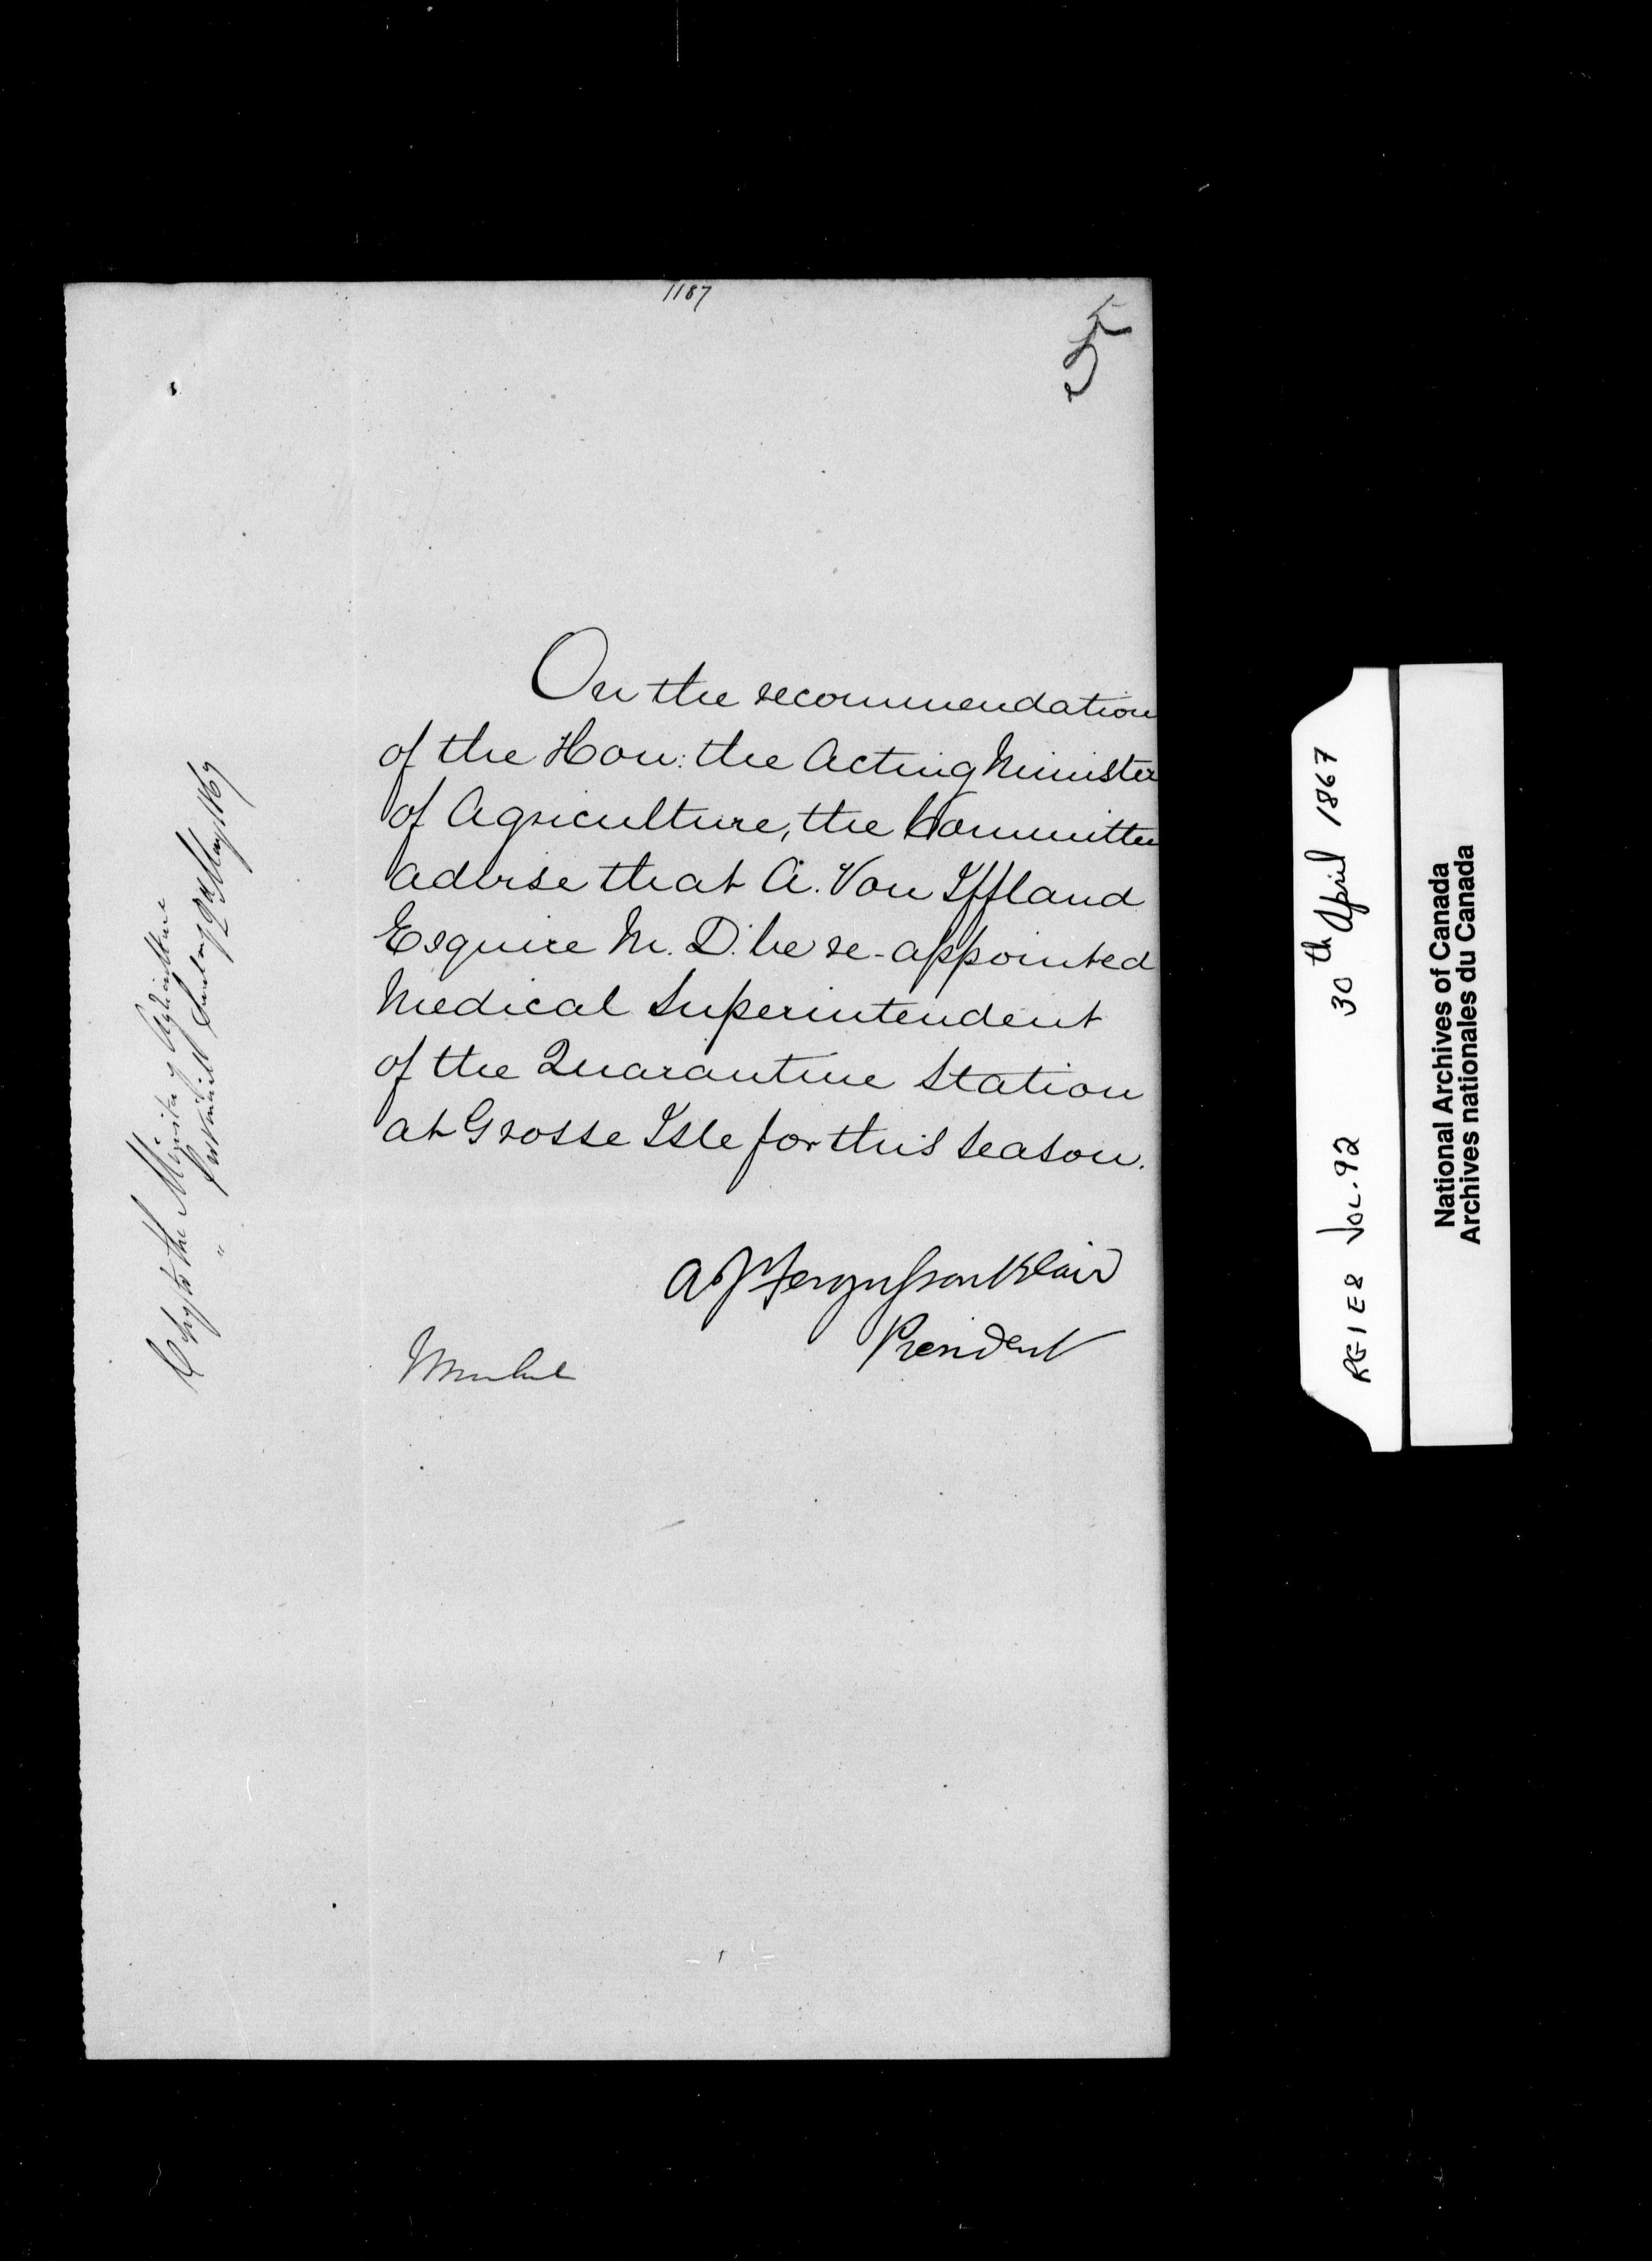 1187
5
On the recommendation
of the Hon: the Acting Minister
of Agriculture, the Committee
advise that A. Von Iffland
Esquire M. D. be re-appointed
Medical Superintendent
of the Quarantine Station
at Grosse Isle for this season.
A. J. Fergusson Blair
President
Copy to the Minister of Agriculture
" Provincial Secretary 2nd May 1867
RG1E8 VOL. 92 30th April 1867
National Archives of Canada
Archives nationales du Canada